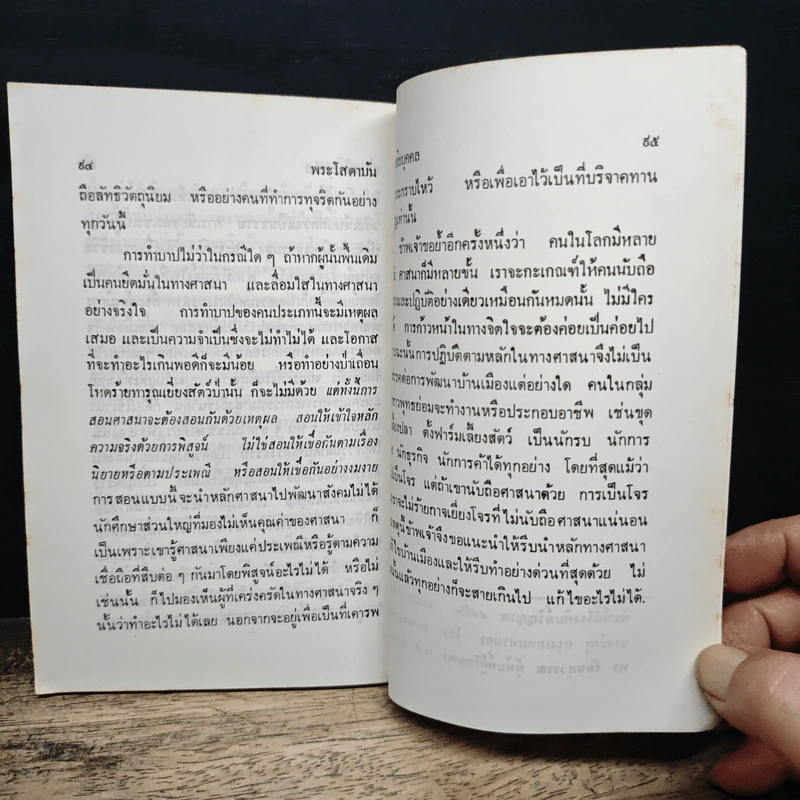 ๙๔ พระโสดาบัน
ถือลัทธิวัตถุนิยม หรืออย่างคนที่ทำทุจริตกันอย่าง
ทุกวันนี้
การทำบาปไม่ว่าในกรณีใด ๆ ถ้าหากผู้นั้นพื้นเดิม
เป็นคนยึดมั่นในทางศาสนา และเลื่อมใสในทางศาสนา
อย่างจริงใจ การทำบาปของคนประเภทนี้จะมีเหตุผล
เสมอ และเป็นความจำเป็นซึ่งจะไม่ทำไม่ได้ และโอกาส
ที่จะทำอะไรเกินพอดีก็จะมีน้อย หรือทำอย่างป่าเถื่อน
โหดร้ายทารุณเยี่ยงสัตว์ป่านั้น ก็จะไม่มีด้วย แต่ทั้งนี้การ
สอนศาสนาจะต้องสอนกันด้วยเหตุผล สอนให้เข้าใจหลัก
ความจริงด้วยการพิสูจน์ ไม่ใช่สอนให้เชื่อกันตามเรื่อง
นิยายหรือตามประเพณี หรือสอนให้เชื่อกันอย่างงมงาย
การสอนแบบนี้จะนำหลักศาสนาไปพัฒนาสังคมไม่ได้
นักศึกษาส่วนใหญ่ที่มองไม่เห็นคุณค่าของศาสนา ก็
เป็นเพราะเขารู้ศาสนาเพียงแค่ประเพณีหรือรู้ตามความ
เชื่อถือที่สืบต่อ ๆ กันมาโดยพิสูจน์อะไรไม่ได้ หรือไม่
เช่นนั้น ก็ไปมองเห็นผู้ที่เคร่งครัดในทางศาสนาจริง ๆ
นั้นว่าทำอะไรไม่ได้เลย นอกจากจะอยู่เพื่อเป็นที่เคารพ
บุคคล ๙๕
กราบไหว้ หรือเพื่อเอาไว้เป็นที่บริจาคทาน
เท่านั้น
ข้าพเจ้าขอย้ำอีกครั้งหนึ่งว่า คนในโลกมีหลาย
ศาสนาก็มีหลายชั้น เราจะกะเกณฑ์ให้คนนับถือ
และปฏิบัติอย่างเดียวเหมือนกันหมดนั้น ไม่มีใคร
การก้าวหน้าในทางจิตใจจะต้องค่อยเป็นค่อยไป
ฉะนั้นการปฏิบัติตามหลักในทางศาสนาจึงไม่เป็น
ต่อการพัฒนาบ้านเมืองแต่อย่างใด คนในกลุ่ม
พุทธย่อมจะทำงานหรือประกอบอาชีพ เช่นขุด
ปลา ตั้งฟาร์มเลี้ยงสัตว์ เป็นนักรบ นักการ
นักธุรกิจ นักการค้าได้ทุกอย่าง โดยที่สุดแม้ว่า
เป็นโจร แต่ถ้าเขานับถือศาสนาด้วย การเป็นโจร
จะไม่ร้ายกาจเยี่ยงโจรที่ไม่นับถือศาสนาแน่นอน
เหตุนี้ข้าพเจ้าจึงขอแนะนำให้รีบนำหลักทางศาสนา
บ้านเมืองและให้รีบทำอย่างด่วนที่สุดด้วย ไม่
นั้นแล้วทุกอย่างก็จะสายเกินไป แก้ไขอะไรไม่ได้.